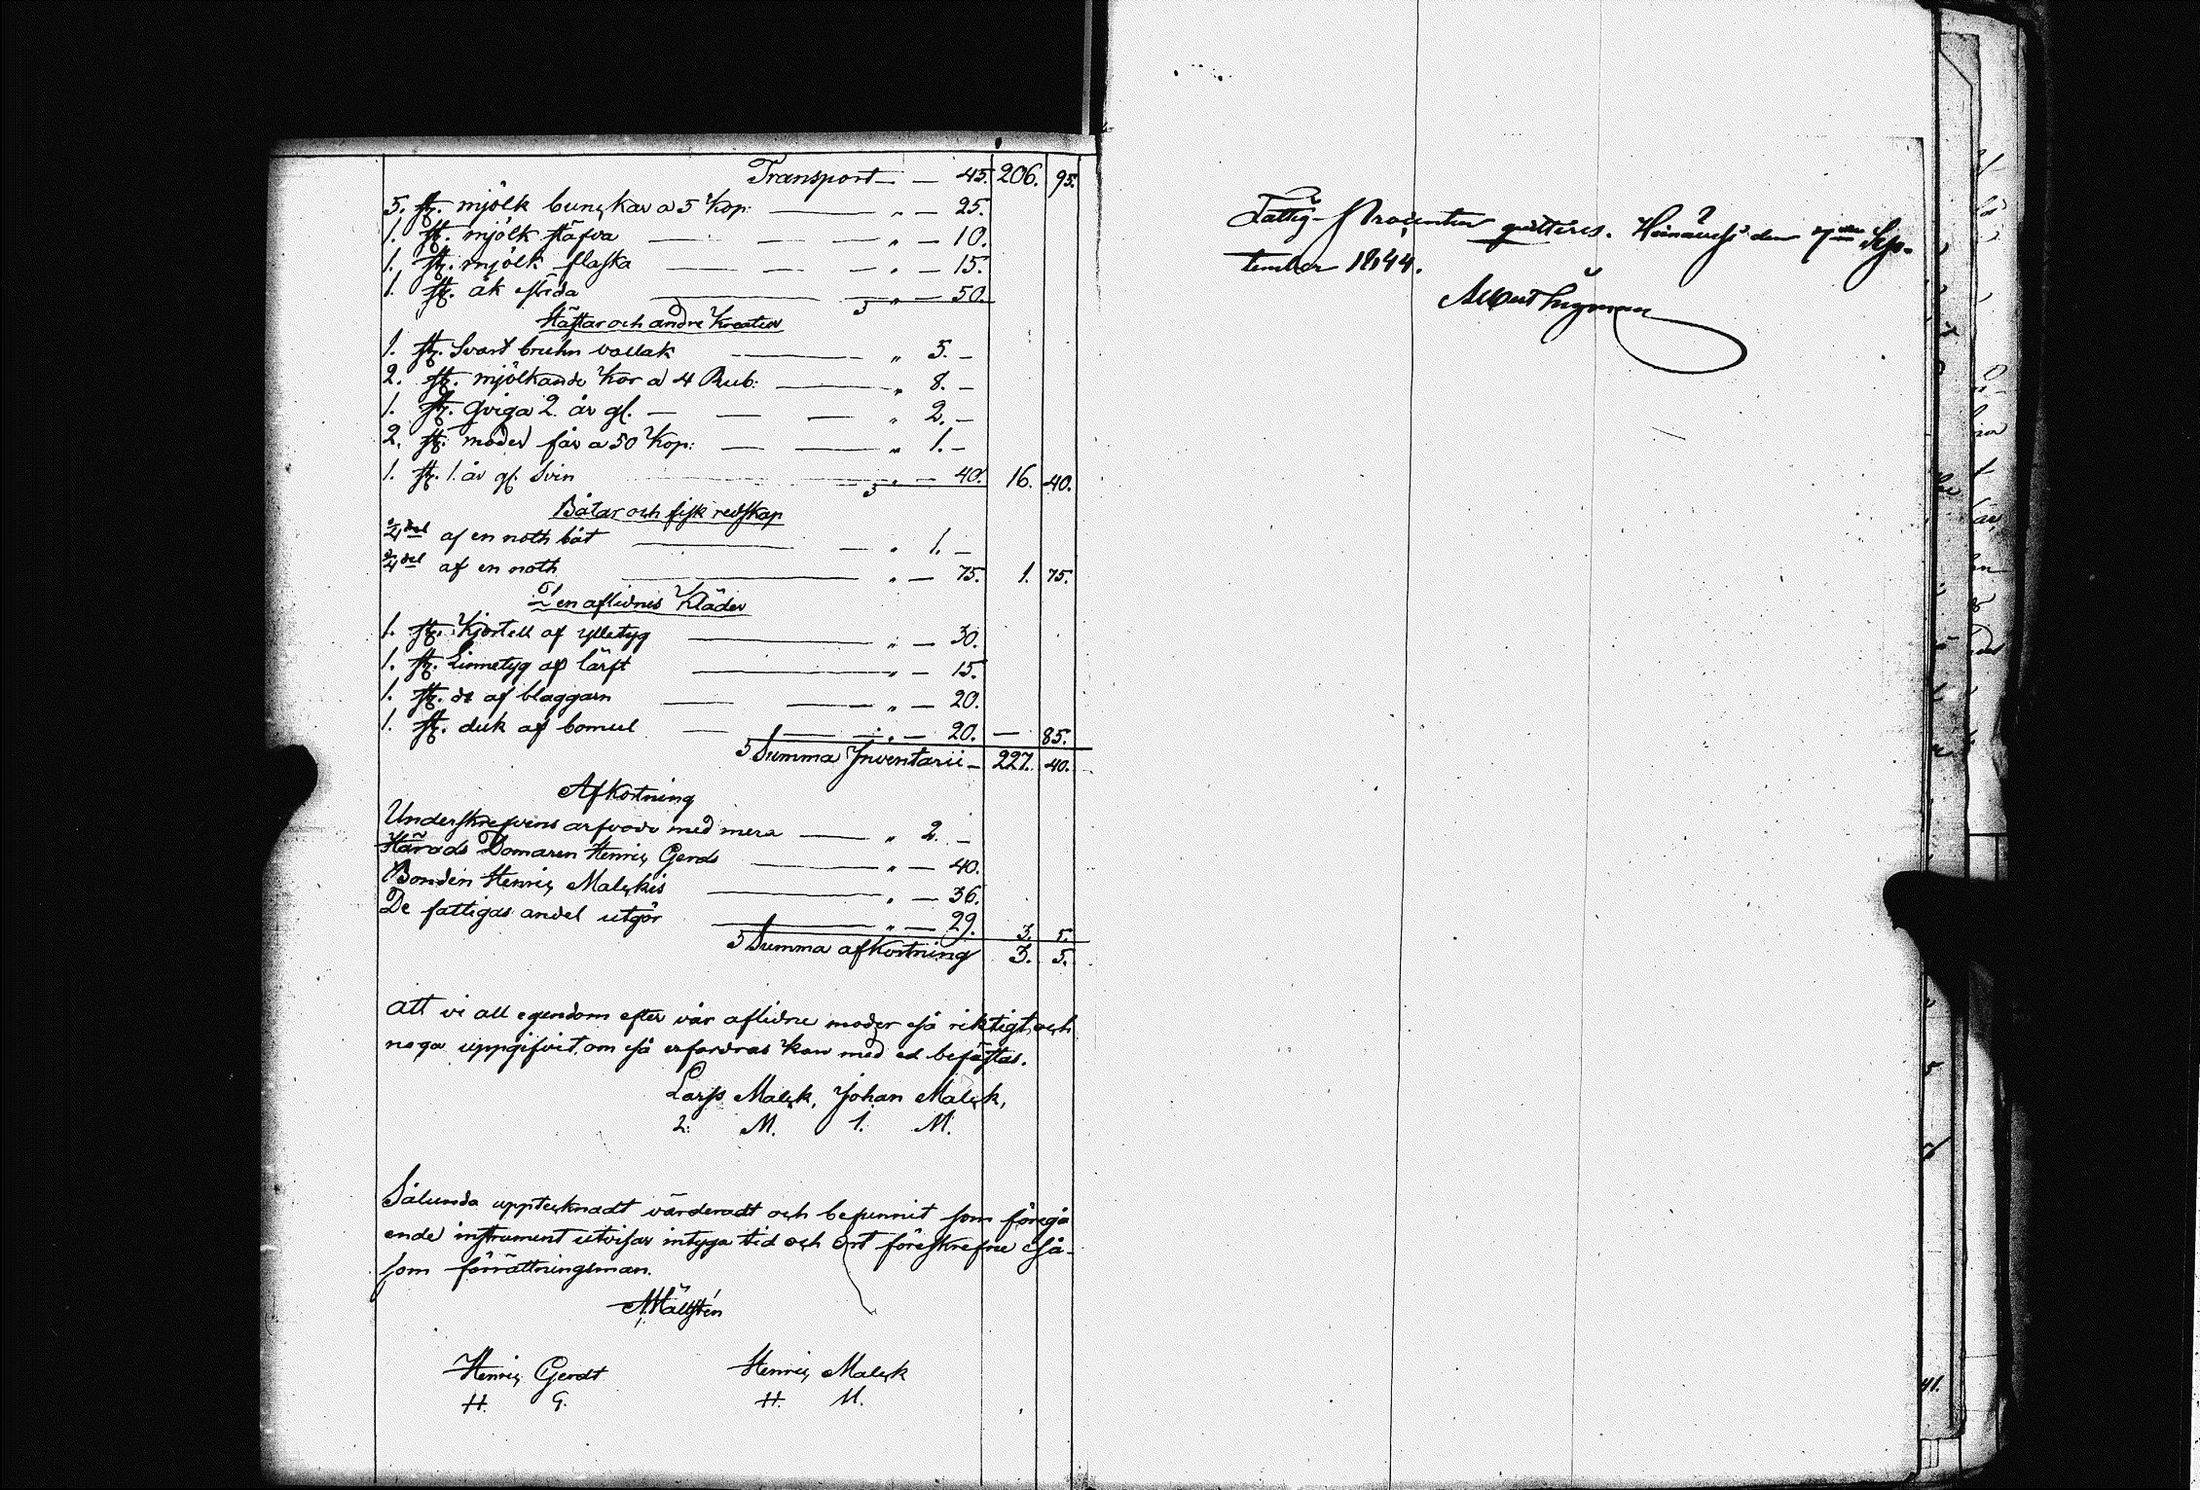 Transport — 45. 206. 95.
5. st. mjölk bunckar a 5 Kop: — " — 25.
1. st. mjölk stäfva — " — 10.
1. st. mjölk flaska — " — 15.
1. st. åk släda — " — 50.
Hästar och andre Kreatur
1. st. Svart bruhn vallak — " 5. —
2. st. mjölkande Kor a 4 Rub: — " 8. —
1. st. qviga 2 år gl. — " 2. —
2. st. moder får a 50 Kop: — " 1. —
1. st. 1. år gl. Svin — " — 40. 16. 40.
Båtar och fisk redskap
af en noth båt — " 1. —
af en noth — " — 75. 1. 75.
Den aflidnes Kläder
1. st. Kjortell af ylletyg — " — 30.
1. st. Linnetyg af lärft — " — 15.
1. st. do af blaggarn — " — 20.
1. st. duk af bomul — " — 20. — 85.
Summa Inventarii — 227. 40.
Afkortning
Underskrefvens arfvode med mera — " 2. —
Härads Domaren Henric Gerds — " — 40.
Bonden Henric Malckis — " — 36.
De fattigas andel utgör — " — 29. 3. 5.
Summa afkortning 3. 5.
Att vi all egendom efter vår aflidne moder så riktigt och
noga uppgifvit, om så erfordras kan med ed befästas.
Larss Malck, Johan Malck,
L. M. I. M.
Sålunda upptecknadt värderadt och befunnit som föregå
ende instrument utvisar intyga tid och ort föreskrefne så-
som förrättningsman.
Henric Gerdt Henric Malck
H. G. H. M.
Fattig-Procenten quitteras. den 7 Sep-
tember 1844.